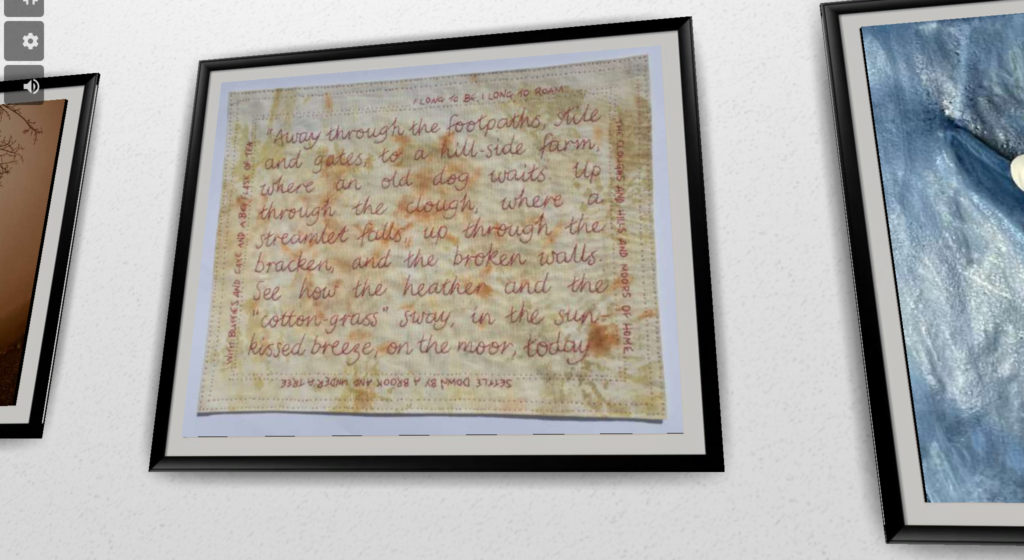 I LONG TO BE I LONG TO ROAM
"Away through the footpaths, stile
and gates, to a hill-side farm,
where an old dog waits. Up
through the clough, where a
streamlet falls, up through the
bracken, and the broken walls.
See how the heather and the
"cotton-grass" sway, in the sun-
kissed breeze, on the moor, today
THE CLOUGHS AND HILLS AND MOORS OF HOME
SETTLE DOWN BY A BROOK AND UNDER A TREE
WITH BUTTIES AND CAKE AND A BOTTLE OF TEA